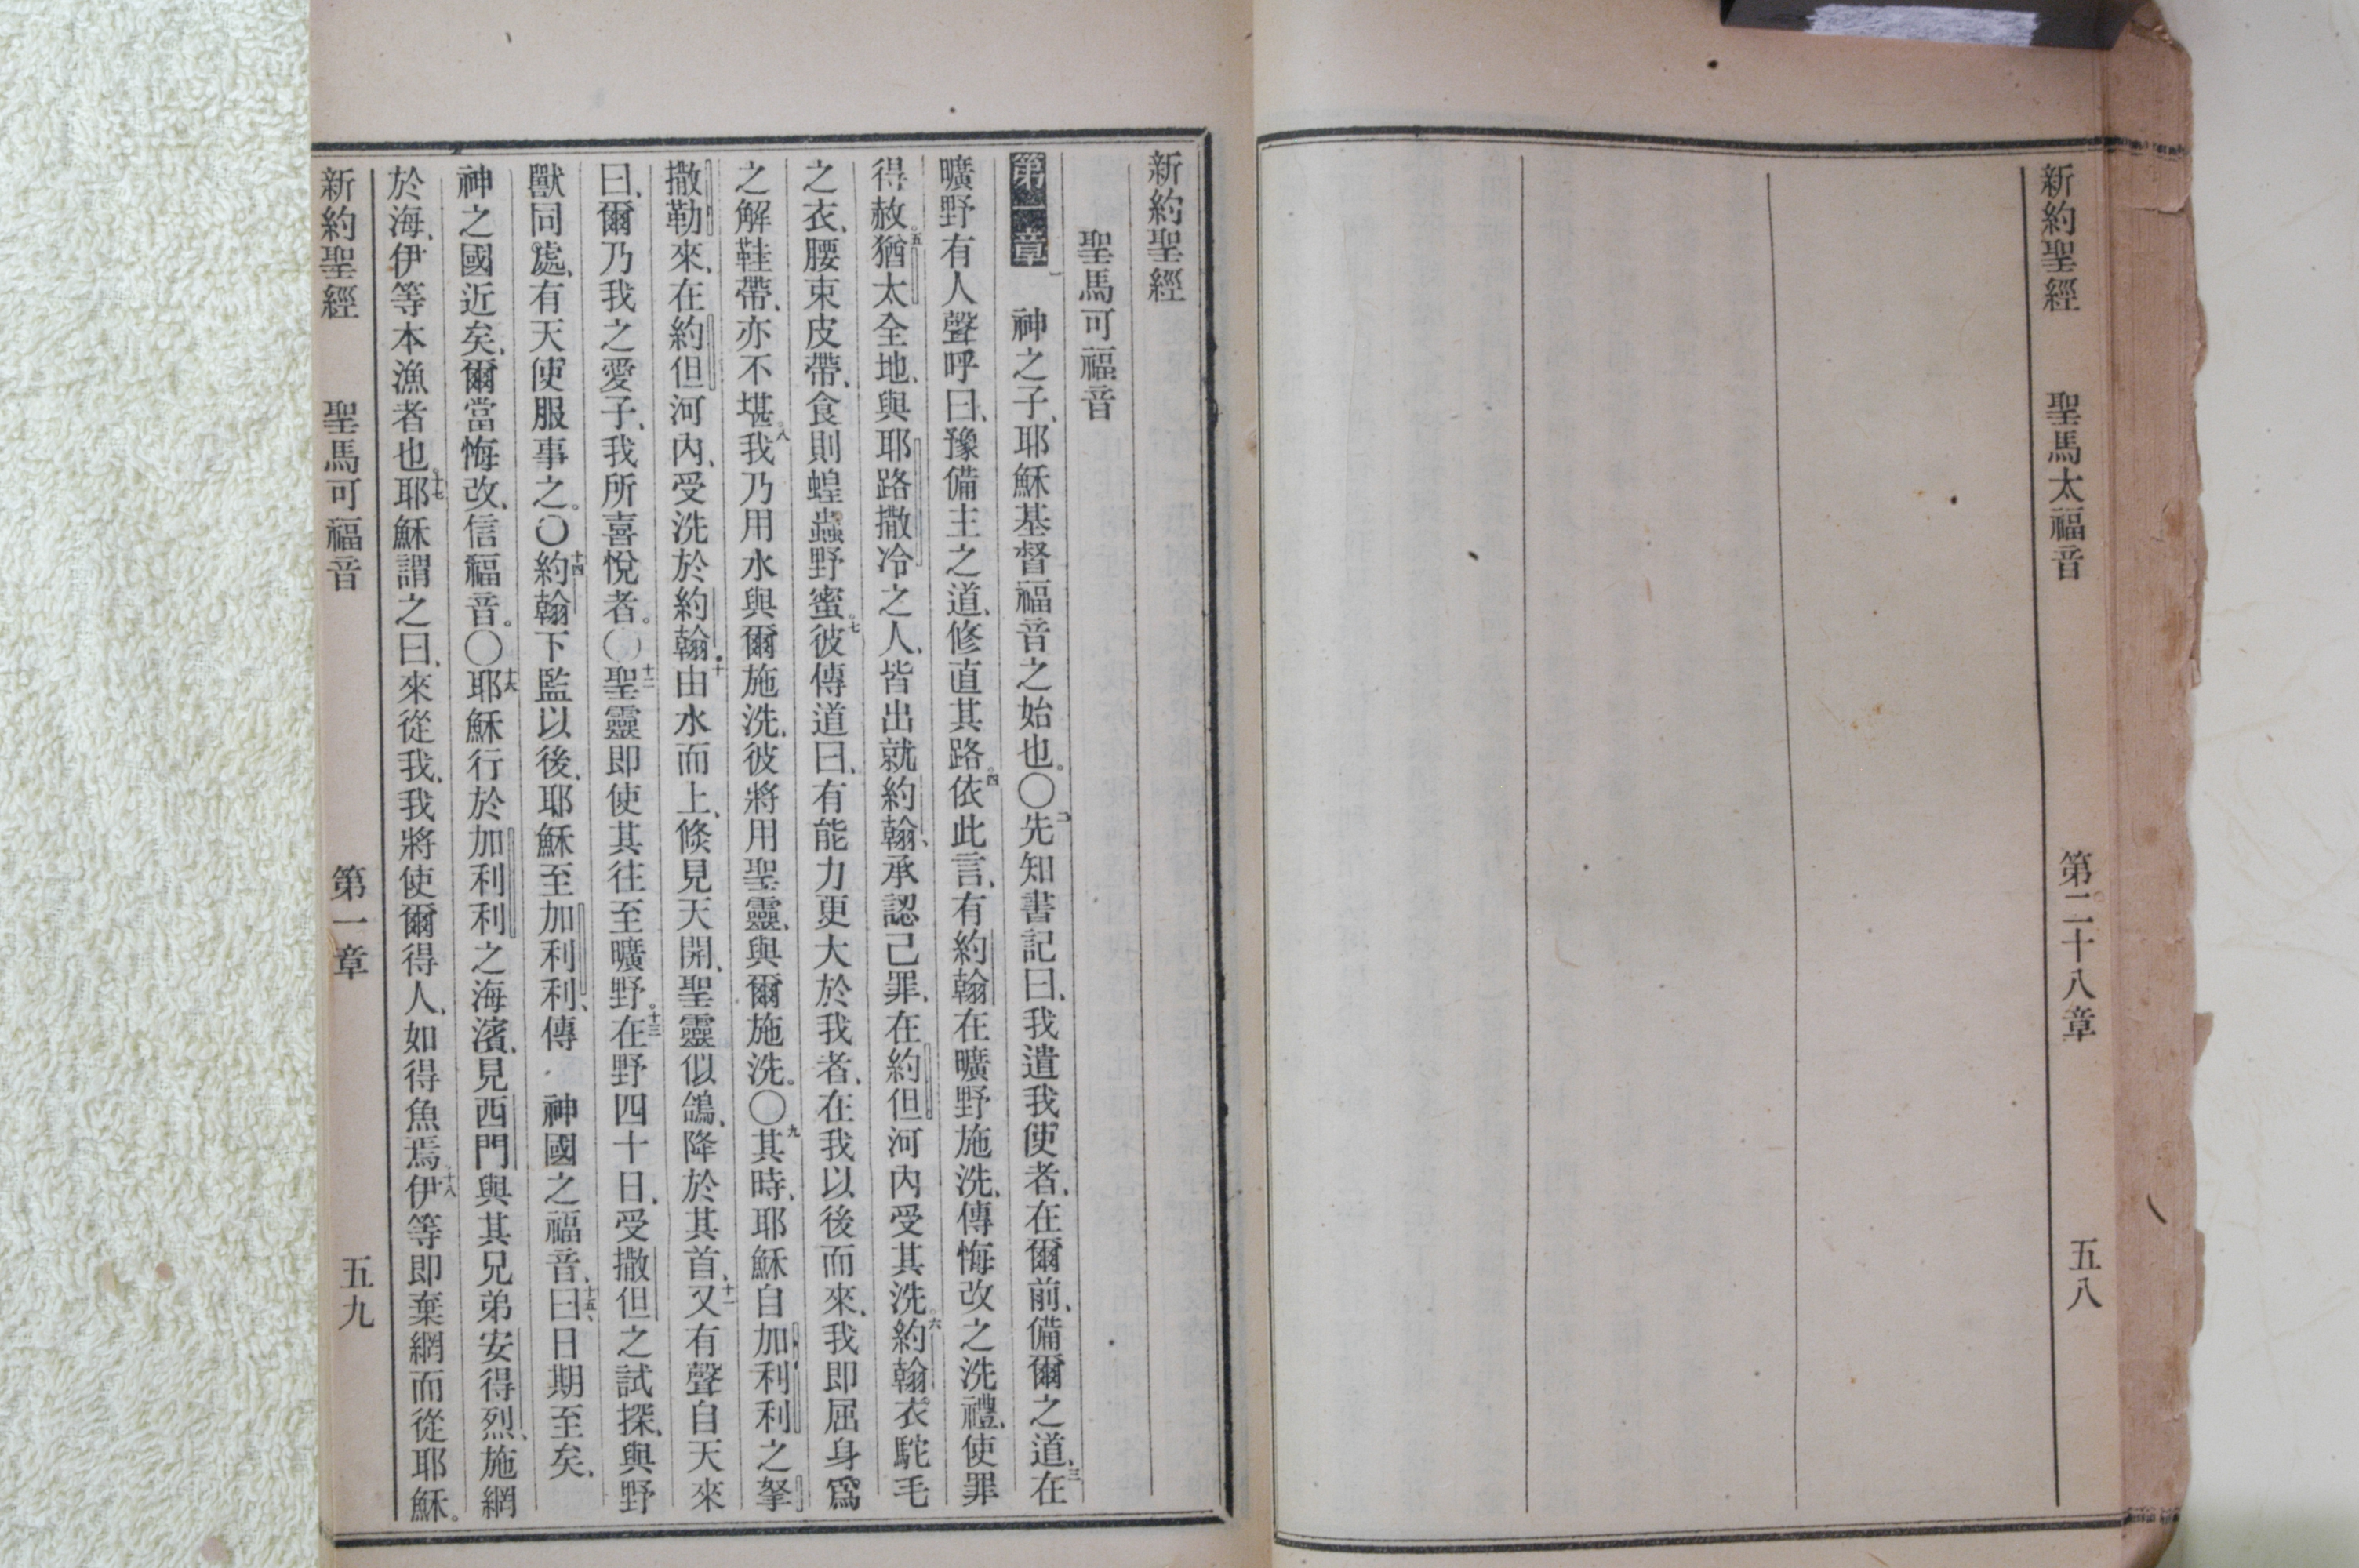 新約聖經　聖馬太福音　第二十八章　五八
新約聖經
聖馬可福音
第一章　一　神之子、耶穌基督福音之始也。〇二先知書記曰、我遣我使者、在爾前、備爾之道、三在
曠野有人聲呼曰、豫備主之道、修直其路。四依此言、有約翰在曠野施洗、傳悔改之洗禮、使罪
得赦。五猶太全地、與耶路撒冷之人、皆出就約翰、承認己罪、在約但河內受其洗。六約翰衣駝毛
之衣、腰束皮帶、食則蝗蟲野蜜。七彼傳道曰、有能力更大於我者、在我以後而來、我即屈身爲
之解鞋帶、亦不堪。八我乃用水與爾施洗、彼將用聖靈、與爾施洗。〇九其時、耶穌自加利利之拏
撒勒來、在約但河內、受洗於約翰。十由水而上、倏見天開、聖靈似鴿、降於其首、十一又有聲自天來
曰、爾乃我之愛子、我所喜悅者。〇十二聖靈即使其往至曠野。十三在野四十日、受撒但之試探、與野
獸同處、有天使服事之。〇十四約翰下監以後、耶穌至加利利、傳　神國之福音、十五曰、日期至矣、
神之國近矣、爾當悔改、信福音。〇十六耶穌行於加利利之海濱、見西門與其兄弟安得烈、施網
於海、伊等本漁者也。十七耶穌謂之曰、來從我、我將使爾得人、如得魚焉。十八伊等即棄網而從耶穌。
新約聖經　聖馬可福音　第一章　五九